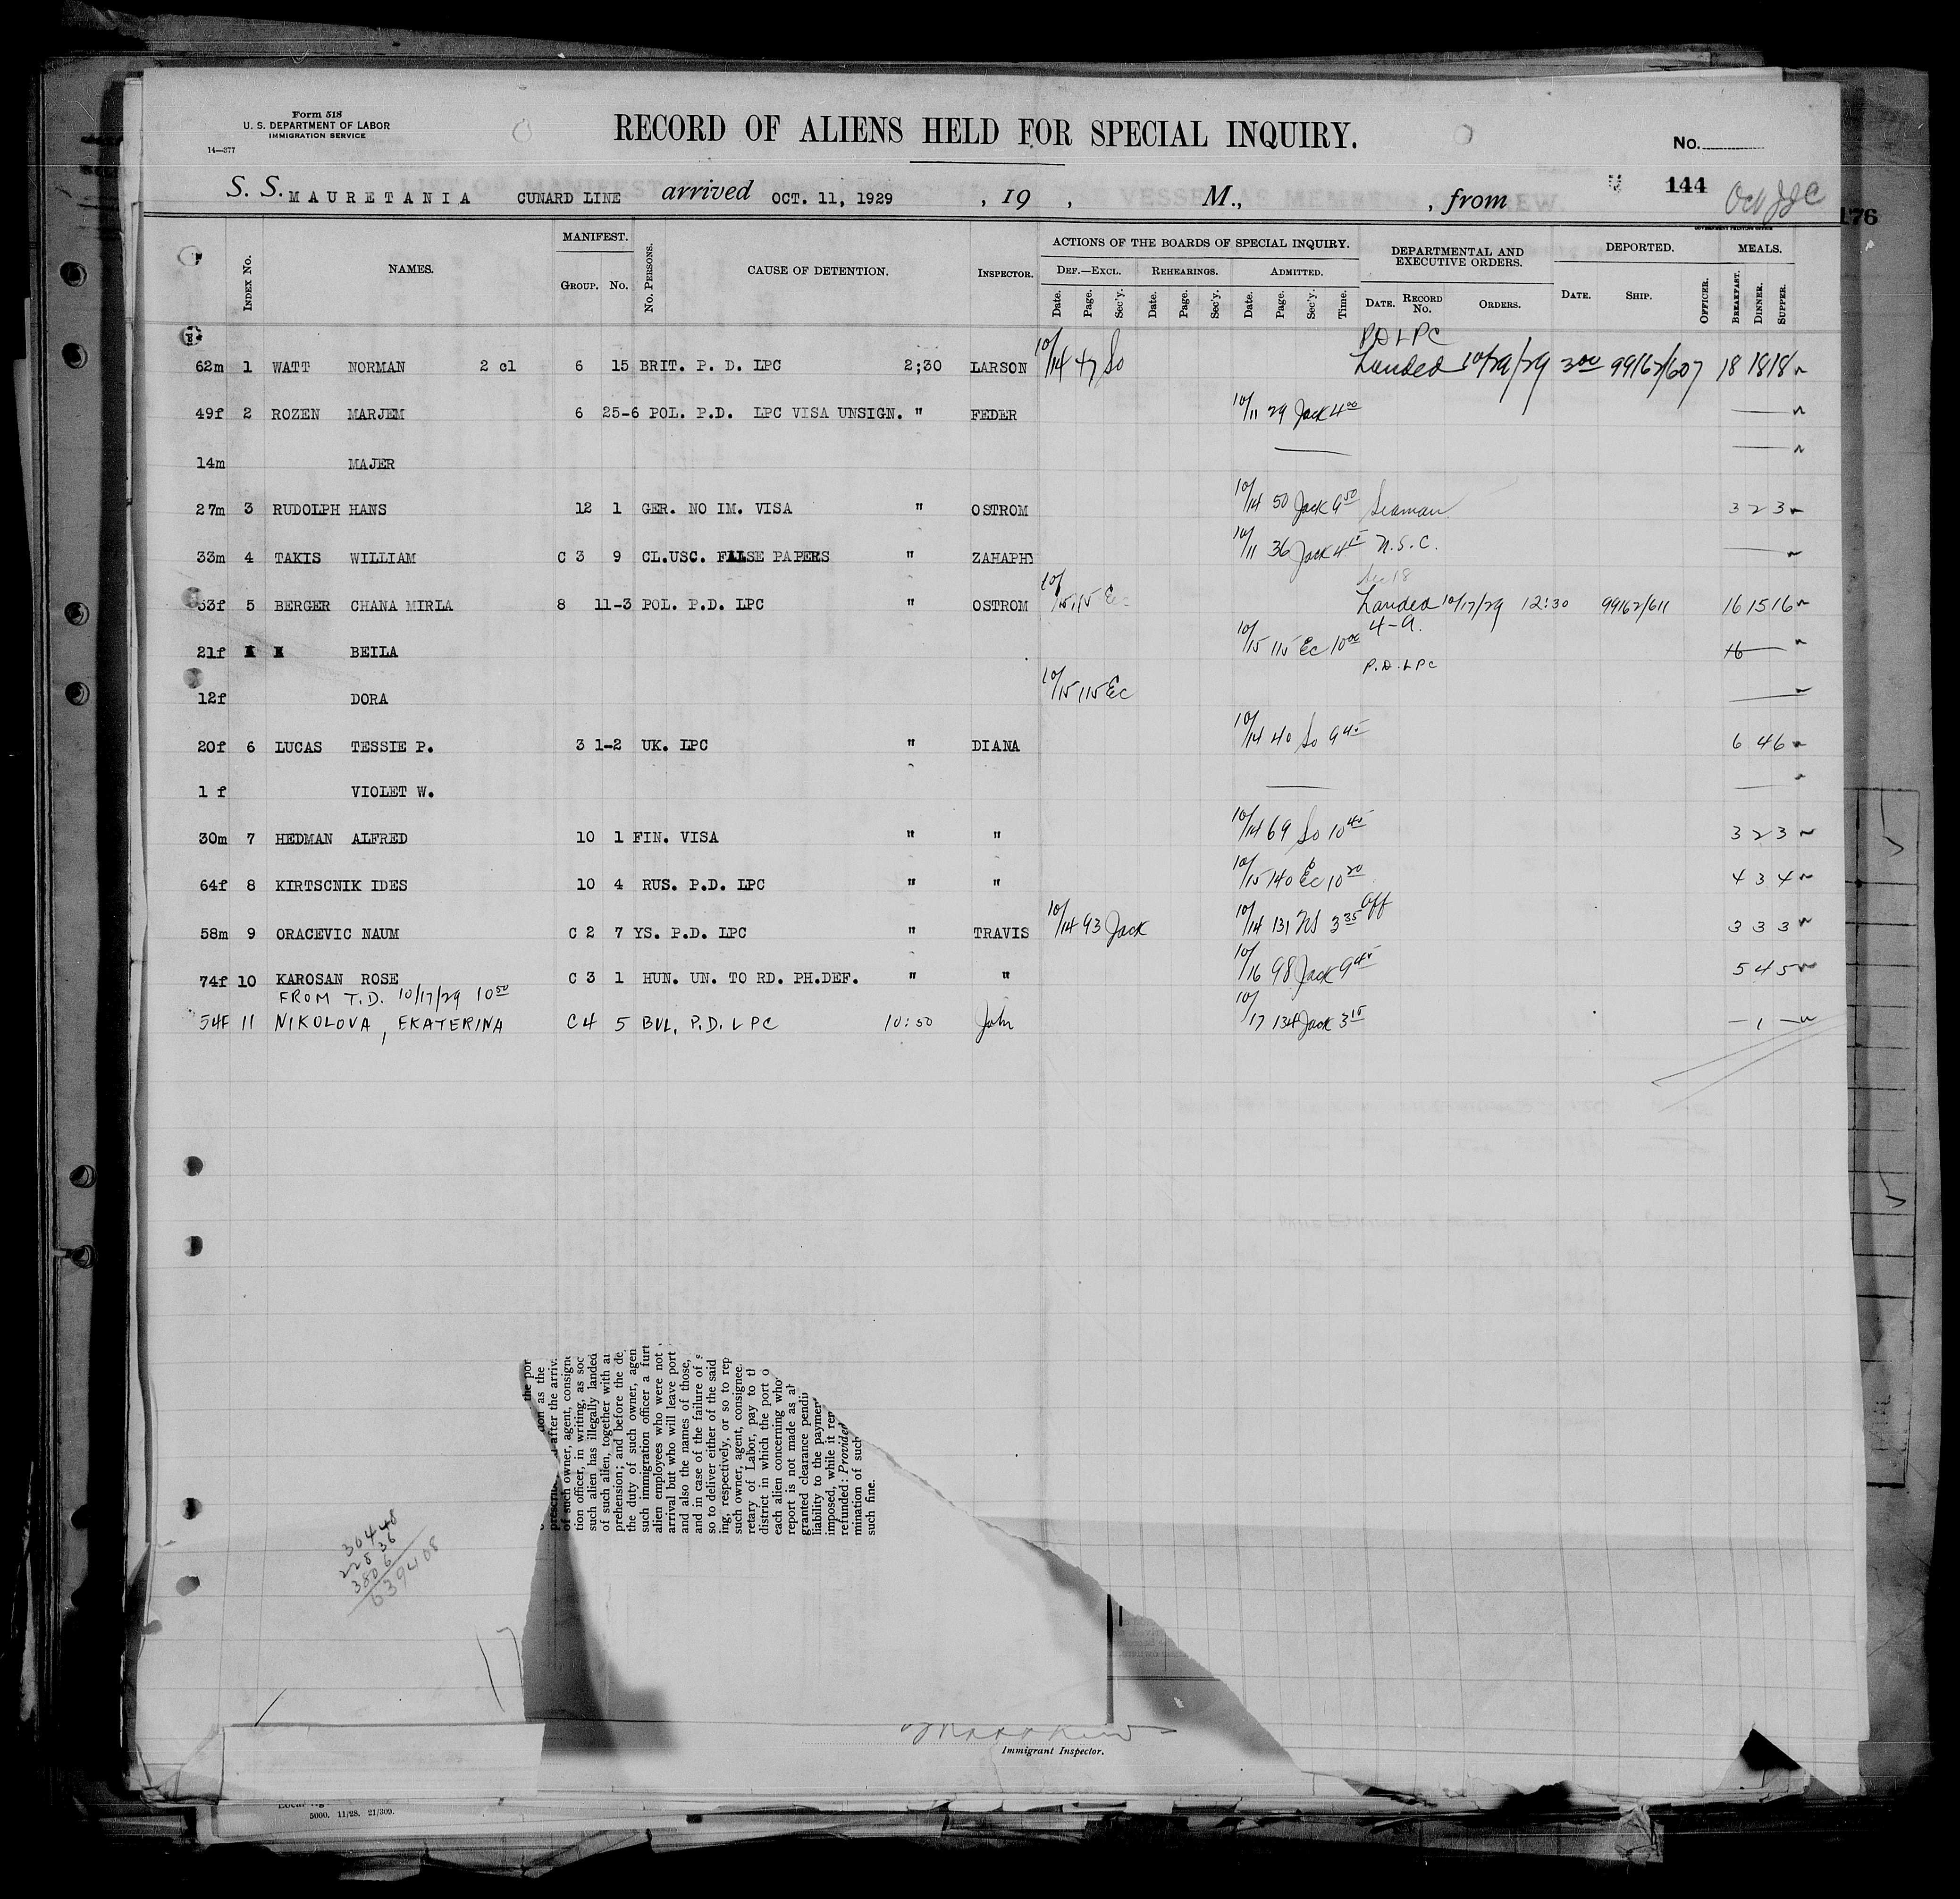 Form 518
U. S. DEPARTMENT OF LABOR
IMMIGRATION SERVICE
14—377
RECORD OF ALIENS HELD FOR SPECIAL INQUIRY.
No.
S. S. MAURETANIA CUNARD LINE arrived OCT. 11, 1929 , 19 , M., , from
144
176
GOVERNMENT PRINTING OFFICE
Index No. NAMES. MANIFEST. Group. No. No. Persons. CAUSE OF DETENTION. Inspector. ACTIONS OF THE BOARDS OF SPECIAL INQUIRY. DEPARTMENTAL AND EXECUTIVE ORDERS. DEPORTED. MEALS.
Def.—Excl. Rehearings. Admitted.
Date. Page. Sec'y. Date. Page. Sec'y. Date. Page. Sec'y. Time. Date. Record No. Orders. Date. Ship. Officer. Breakfast. Dinner. Supper.
PD LPC
62m 1 WATT NORMAN 2 cl 6 15 BRIT. P. D. LPC 2;30 LARSON 10/14 47 So Landed 10/29/29 3 00 99162/607 18 18 18
49f 2 ROZEN MARJEM 6 25-6 POL. P.D. LPC VISA UNSIGN. " FEDER 10/11 29 Jack 4 00
14m MAJER
27m 3 RUDOLPH HANS 12 1 GER. NO IM. VISA " OSTROM 10/14 50 Jack 9 50 Seaman 3 2 3
33m 4 TAKIS WILLIAM C 3 9 CL.USC. FALSE PAPERS " ZAHAPHY 10/11 36 Jack 4 15 U.S.C.
Sec 18
53f 5 BERGER CHANA MIRLA 8 11-3 POL. P.D. LPC " OSTROM 10/15 115 Ec Landed 10/17/29 12:30 99162/611 16 15 16
4-a.
21f BEILA 10/15 115 Ec 10 00 16
P.D. LPC
12f DORA 10/15 115 Ec
20f 6 LUCAS TESSIE P. 3 1-2 UK. LPC " DIANA 10/14 40 So 9 45 6 4 6
1 f VIOLET W.
30m 7 HEDMAN ALFRED 10 1 FIN. VISA " " 10/14 69 So 10 40 3 2 3
64f 8 KIRTSCNIK IDES 10 4 RUS. P.D. LPC " " 10/15 140 Ec 10 20 4 3 4
58m 9 ORACEVIC NAUM C 2 7 YS. P.D. LPC " TRAVIS 10/14 93 Jack 10/14 131 NS 3 35 Off 3 3 3
74f 10 KAROSAN ROSE C 3 1 HUN. UN. TO RD. PH.DEF. " " 10/16 98 Jack 9 45 5 4 5
FROM T.D. 10/17/29 10 50
54F 11 NIKOLOVA, EKATERINA C4 5 BUL. P.D. LPC 10:50 John 10/17 134 Jack 3 15 — 1 —
the por
as the
after the arriv
of such owner, agent, consigne
tion officer, in writing, as soc
such alien has illegally landed
of such alien, together with a
prehension; and before the de
the duty of such owner, agen
such immigration officer a furt
alien employees who were not
arrival but who will leave port
and also the names of those,
and in case of the failure of s
so to deliver either of the said
ing, respectively, or so to rep
such owner, agent, consignee
retary of Labor, pay to th
district in which the port o
each alien concerning who
report is not made as a
granted clearance pendi
liability to the paymen
imposed, while it re
refunded: Provided
mination of such
such fine.
30448
22836
3806
639408
Immigrant Inspector.
5000. 11/28. 21/309.